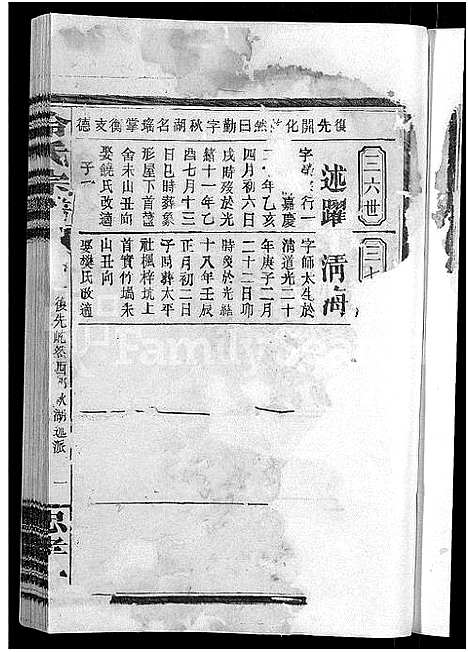 復先開化 然曰勤字秋湖名瑤掌衡支德
三六世
述躍
字 行一
嘉慶
年乙亥
四月初六日
戌時歿於光
緒十一年乙
酉七月十三
日巳時葬象
形屋下首蓋
舍未山丑向
娶饒氏改適
子一
三七
清海
字師太生於
清道光二十
年庚子二月
二十二日卯
時歿於光緒
十八年壬辰
正月初二日
子時葬太平
社楓梓坑上
首實竹塢未
山丑向
娶樊氏改適
氏宗譜
後先屹然 秋湖 派
一
忠孝
Family